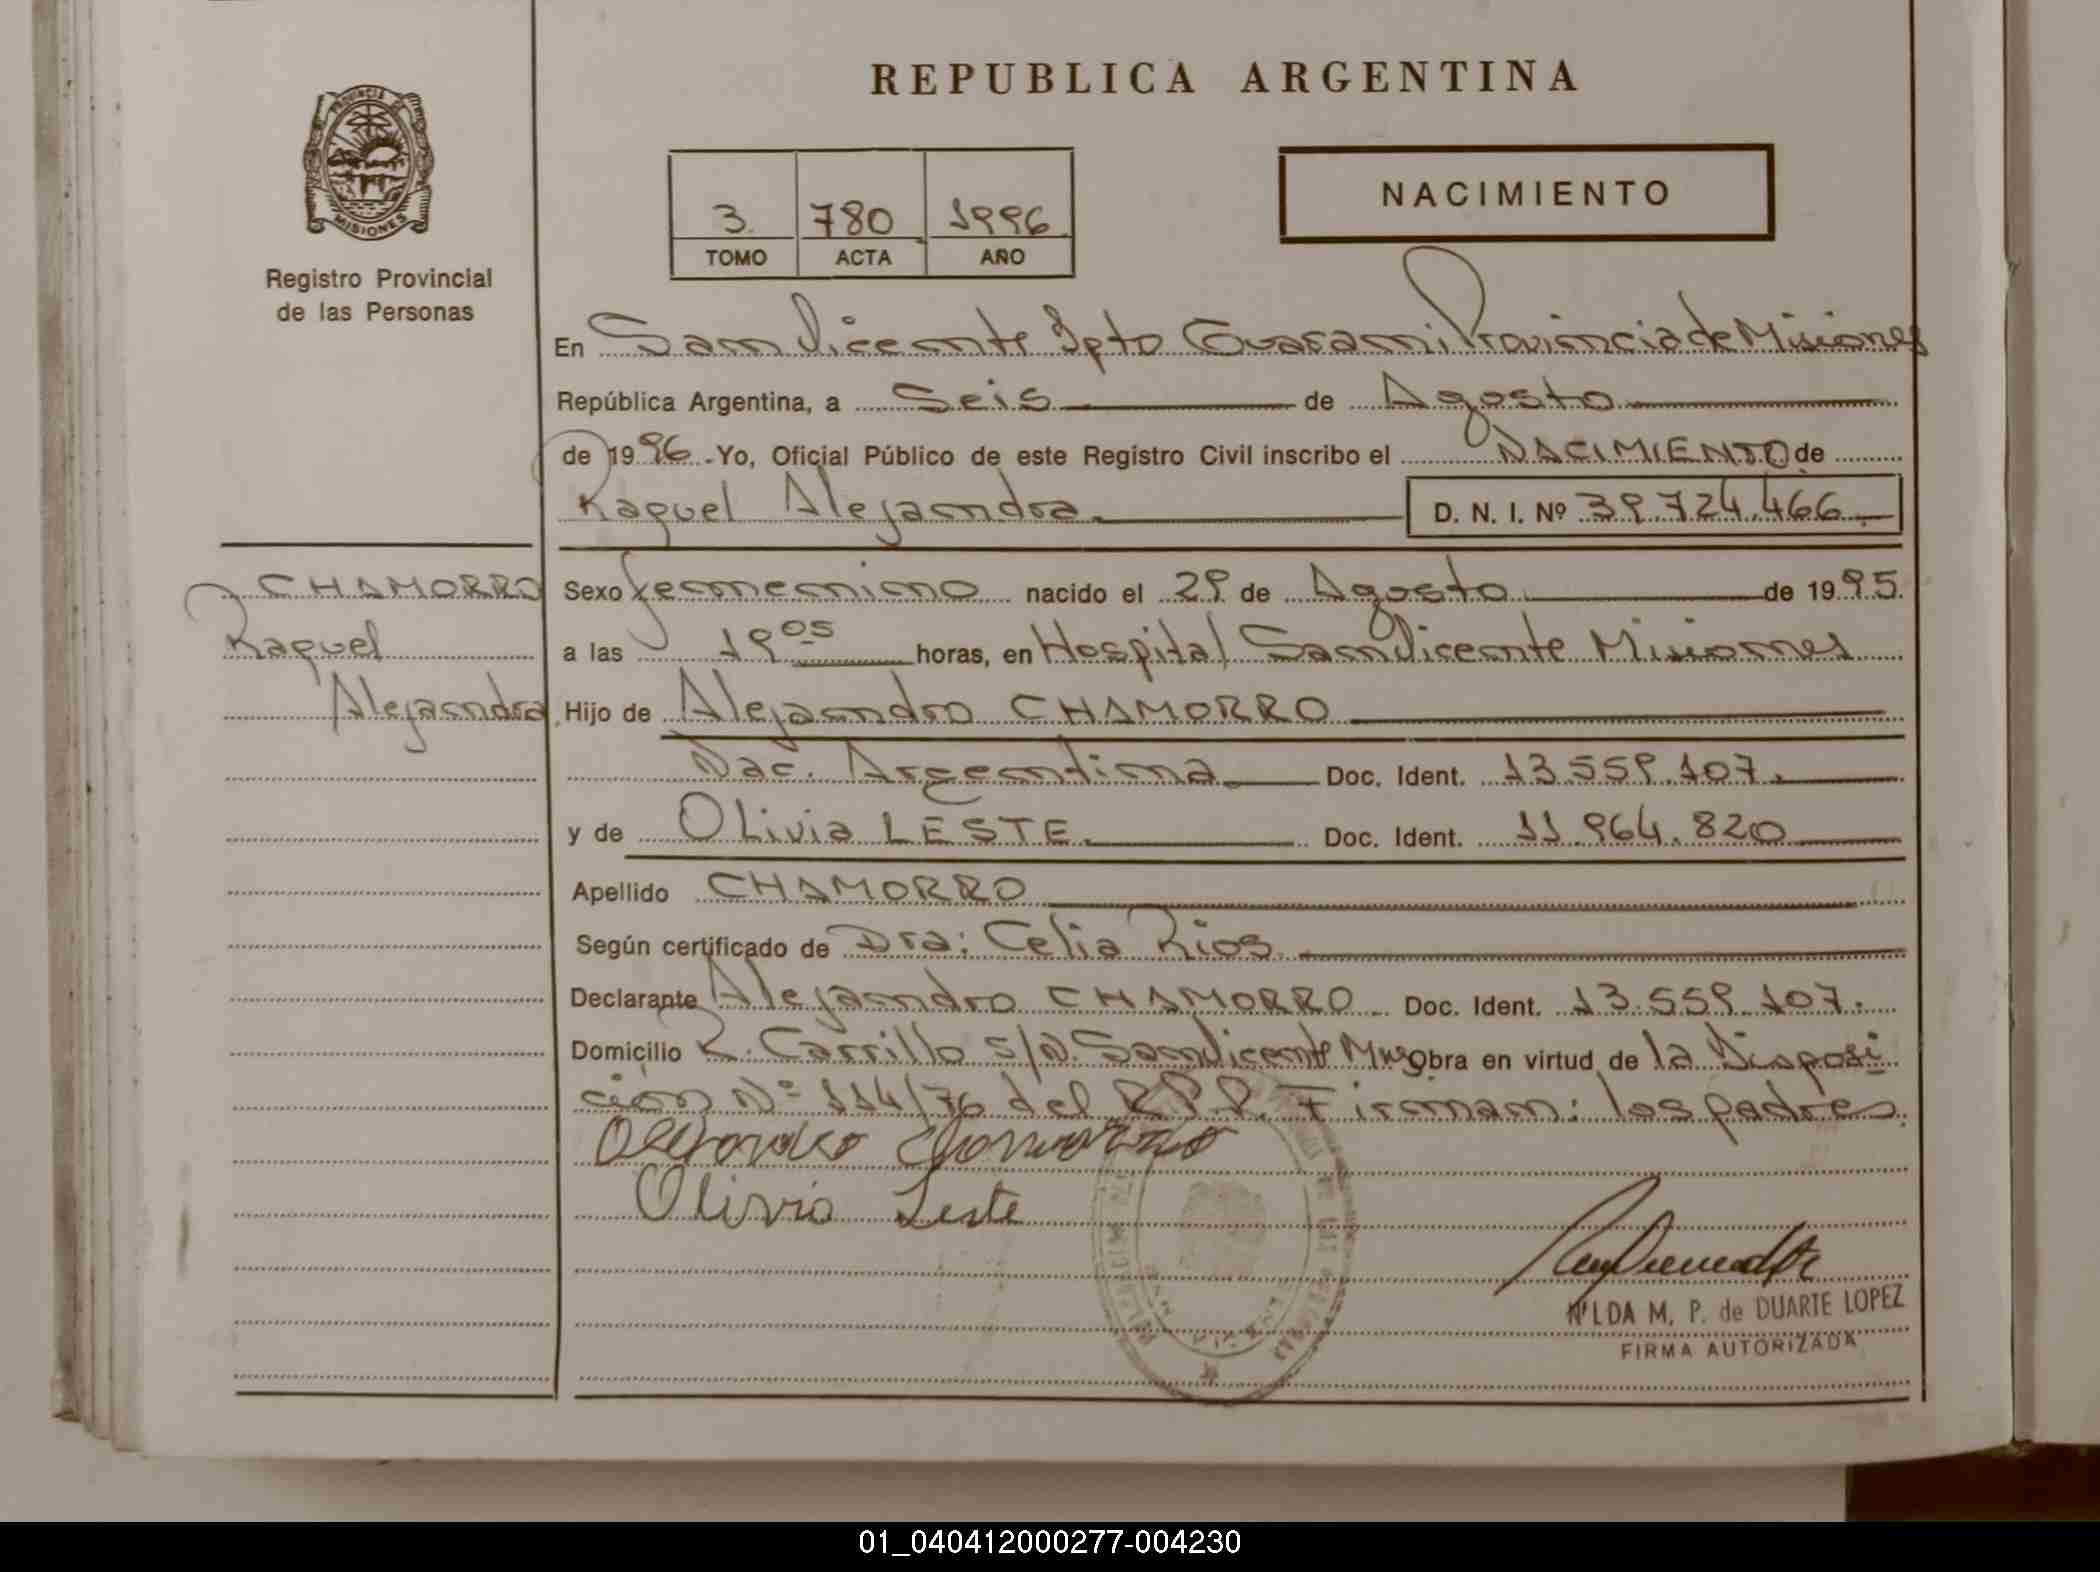 REPUBLICA ARGENTINA
PROVINCIA DE
MISIONES
Registro Provincial
de las Personas
3 780 1996
TOMO ACTA AÑO
NACIMIENTO
En San Vicente Dpto Guarani Provincia de Misiones
República Argentina, a Seis de Agosto
de 1996.-Yo, Oficial Público de este Registro Civil inscribo el NACIMIENTO de
Raquel Alejandra D. N. I. Nº 39.724.466.
CHAMORRO
Raquel
Alejandra
Sexo femenino nacido el 29 de Agosto de 1995.
a las 19 05 horas, en Hospital San Vicente Misiones
Hijo de Alejandro CHAMORRO
Nac. Argentina Doc. Ident. 13.559.107.
y de Olivia LESTE. Doc. Ident. 11.964.820
Apellido CHAMORRO
Según certificado de Dra: Celia Rios.
Declarante Alejandro CHAMORRO. Doc. Ident. 13.559.107.
Domicilio R. Carrillo s/N. San Vicente Obra en virtud de la Disposi
cion Nº 114/76 del R.P.P. Firman: los padres.
Alejandro Chamorro
Olivia Leste
NILDA M. P. de DUARTE LOPEZ
FIRMA AUTORIZADA
01_040412000277-004230